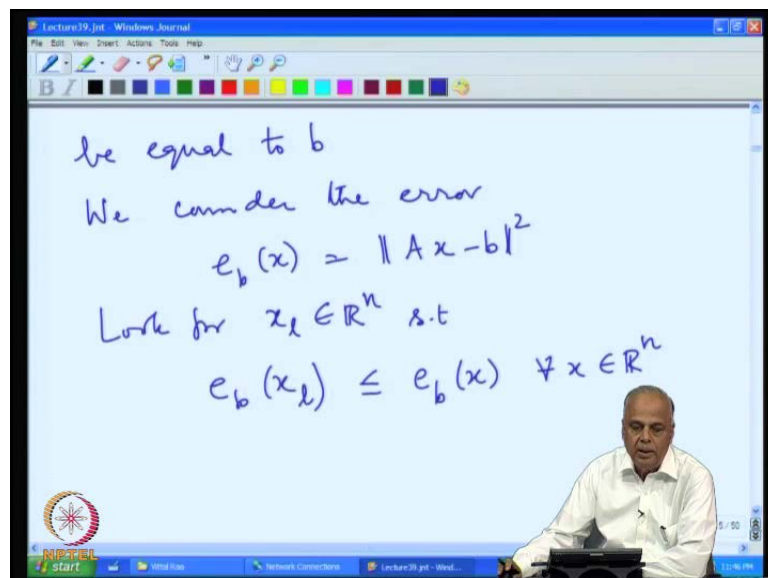 Lecture39.jnt - Windows Journal
File Edit View Insert Actions Tools Help
B I
be equal to b
We consider the error
e_b (x) = ‖Ax - b‖²
Look for x_l ∈ ℝⁿ s.t
e_b (x_l) ≤ e_b (x) ∀ x ∈ ℝⁿ
5 / 50
NPTEL
start Vittal Rao Network Connections Lecture39.jnt - Wind... 11:46 PM